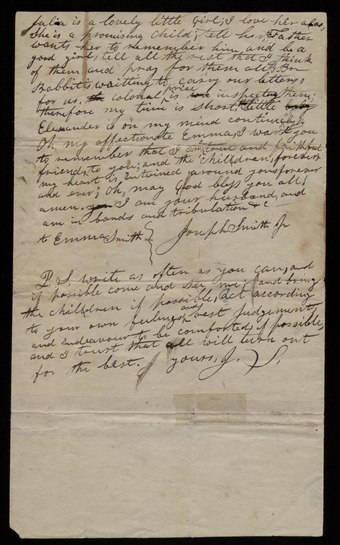 Julia is a lovely little Girl; I love her also,
She is a promising child, tell her, Father
wants her to remember him and be a
good girl, tell all the rest that I think
of them and pray for them all, Br
Babbitt is waitting to carry our letters
for us, the colonal price is inspecting them;
therefore my time is short, little
Elexander is on my mind continuerly
Oh my affectionate Emma, I want you
to remember that I am true and faithful
friend, to you; and the children, forever
my heart is intwined around yours forever
and ever; Oh, may God bless you all,
amen I am your husband, and
am in bands and tribulation &c
to Emma Smith } Joseph Smith Jr
P. S. write as often as you can, and
if possible come and see me, and bring
the children if possible, act according
to your own feelings, and best Judgement
and endeavour to be comforted, if possible,
and I trust that all will turn out
for the best. yours, J. S.